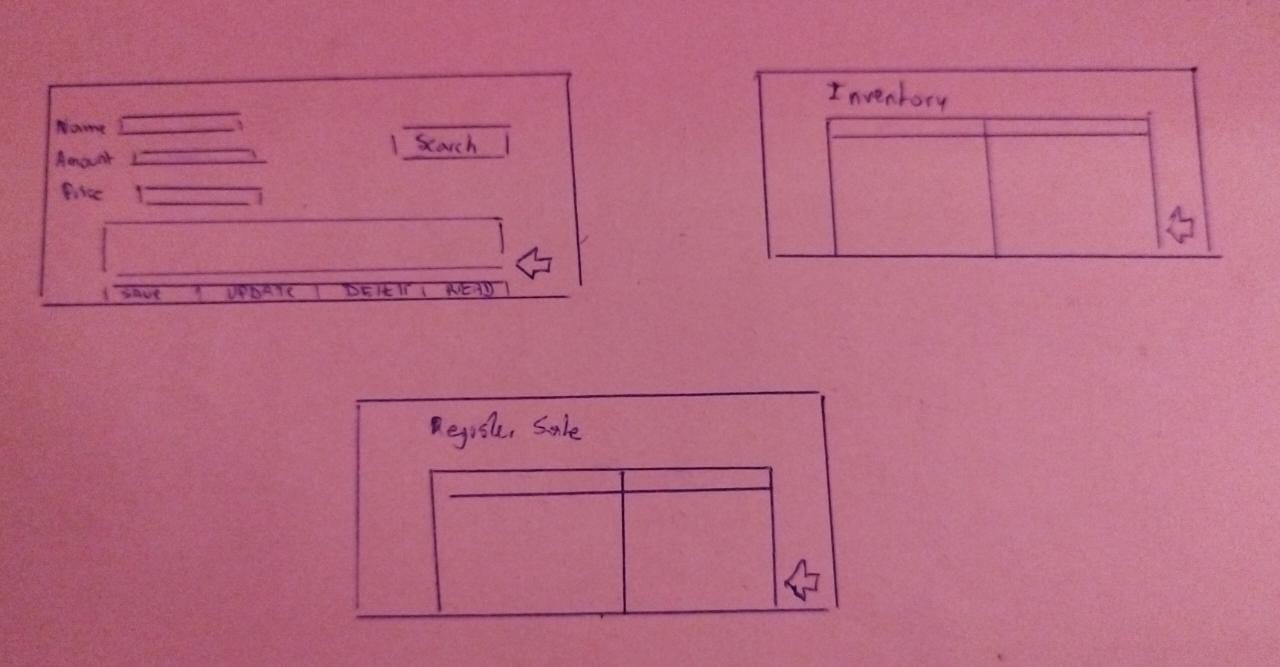 Name
Amount
Price
Search
SAVE UPDATE DELETE READ
Inventory
Register Sale